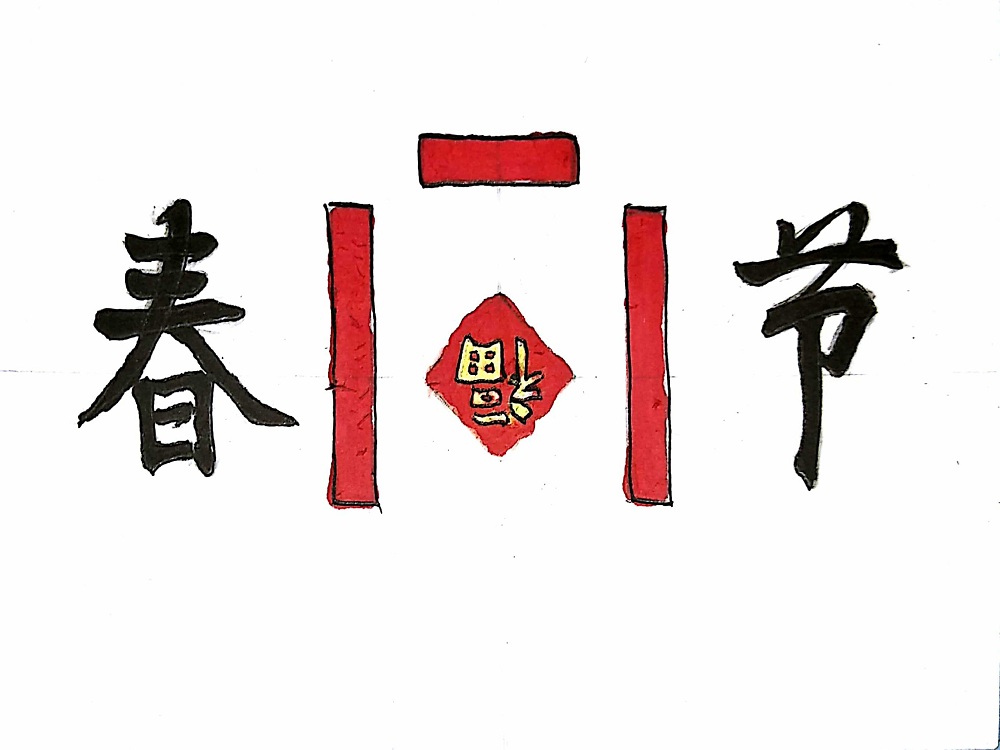 春 福 节